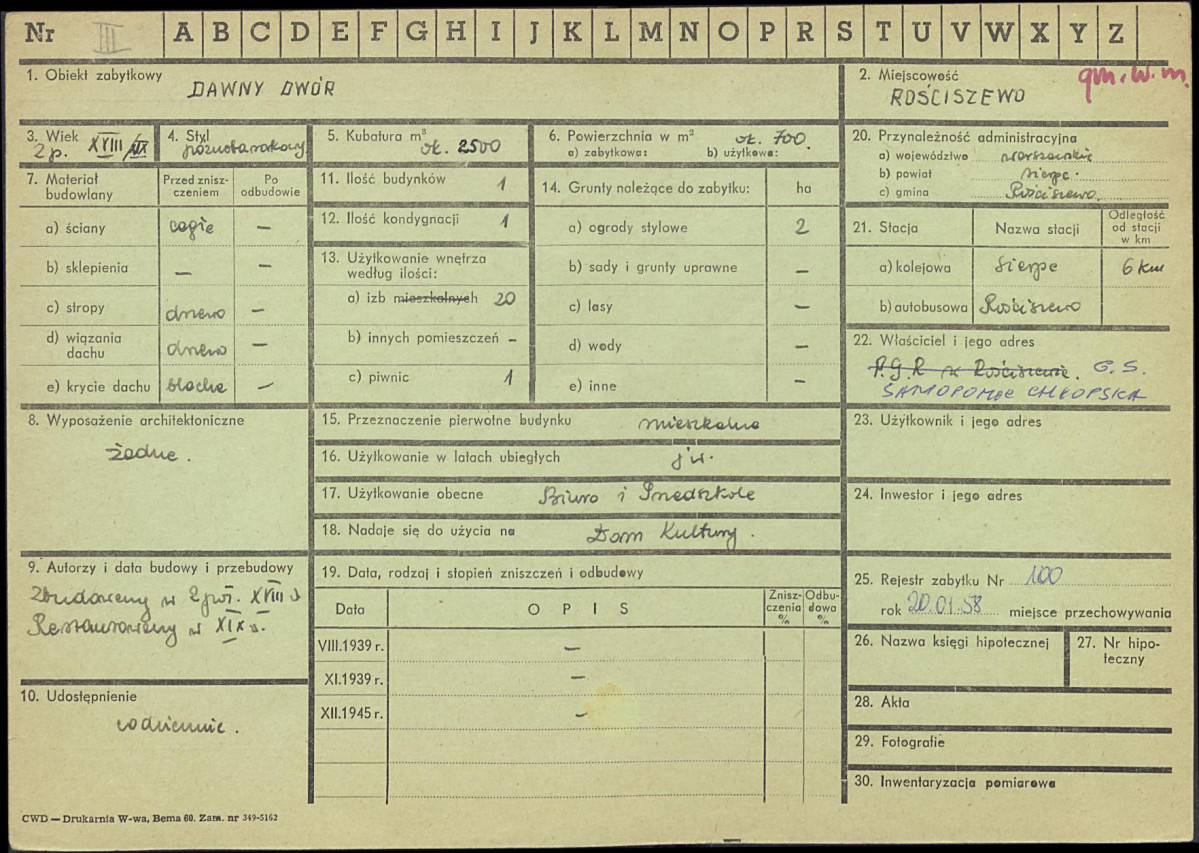 Nr III A B C D E F G H I J K L M N O P R S T U V W X Y Z
1. Obiekt zabytkowy
DAWNY DWÓR
2. Miejscowość
gm. w. m.
ROŚCISZEWO
3. Wiek
2 p. XVIII/XIX
4. Styl
późnobarokowy
5. Kubatura m³
ok. 2500
6. Powierzchnia w m² ok. 700.
a) zabytkowa: b) użytkowa:
20. Przynależność administracyjna
a) województwo warszawskie
b) powiat sierpc.
c) gmina Rościszewo.
7. Materiał budowlany
Przed zniszczeniem
Po odbudowie
a) ściany cegła —
b) sklepienia — —
c) stropy drewo —
d) wiązania dachu drewo —
e) krycie dachu blacha —
11. Ilość budynków 1
12. Ilość kondygnacji 1
13. Użytkowanie wnętrza
według ilości:
a) izb mieszkalnych 20
b) innych pomieszczeń –
c) piwnic 1
14. Grunty należące do zabytku: ha
a) ogrody stylowe 2
b) sady i grunty uprawne —
c) lasy —
d) wody —
e) inne —
21. Stacja Nazwa stacji Odległość od stacji w km
a) kolejowa Sierpc 6 km
b) autobusowa Rościszewo
22. Właściciel i jego adres
P.G.R w Rościszewie. G. S.
SAMOPOMOC CHŁOPSKA
8. Wyposażenie architektoniczne
żadne.
15. Przeznaczenie pierwotne budynku mieszkalne
16. Użytkowanie w latach ubiegłych j.w.
17. Użytkowanie obecne Biuro i Przedszkole
18. Nadaje się do użycia na Dom Kultury.
23. Użytkownik i jego adres
24. Inwestor i jego adres
9. Autorzy i data budowy i przebudowy
Zbudowany w 2 poł. XVIII w
Restaurowany w XIX w.
10. Udostępnienie
codziennie.
19. Data, rodzaj i stopień zniszczeń i odbudowy
Data OPIS Zniszczenia % Odbudowa %
VIII.1939 r. —
XI.1939 r. —
XII.1945 r. —
25. Rejestr zabytku Nr 100
rok 20.01.58 miejsce przechowywania
26. Nazwa księgi hipotecznej
27. Nr hipoteczny
28. Akta
29. Fotografie
30. Inwentaryzacja pomiarowa
CWD — Drukarnia W-wa, Bema 60. Zam. nr 349-5162